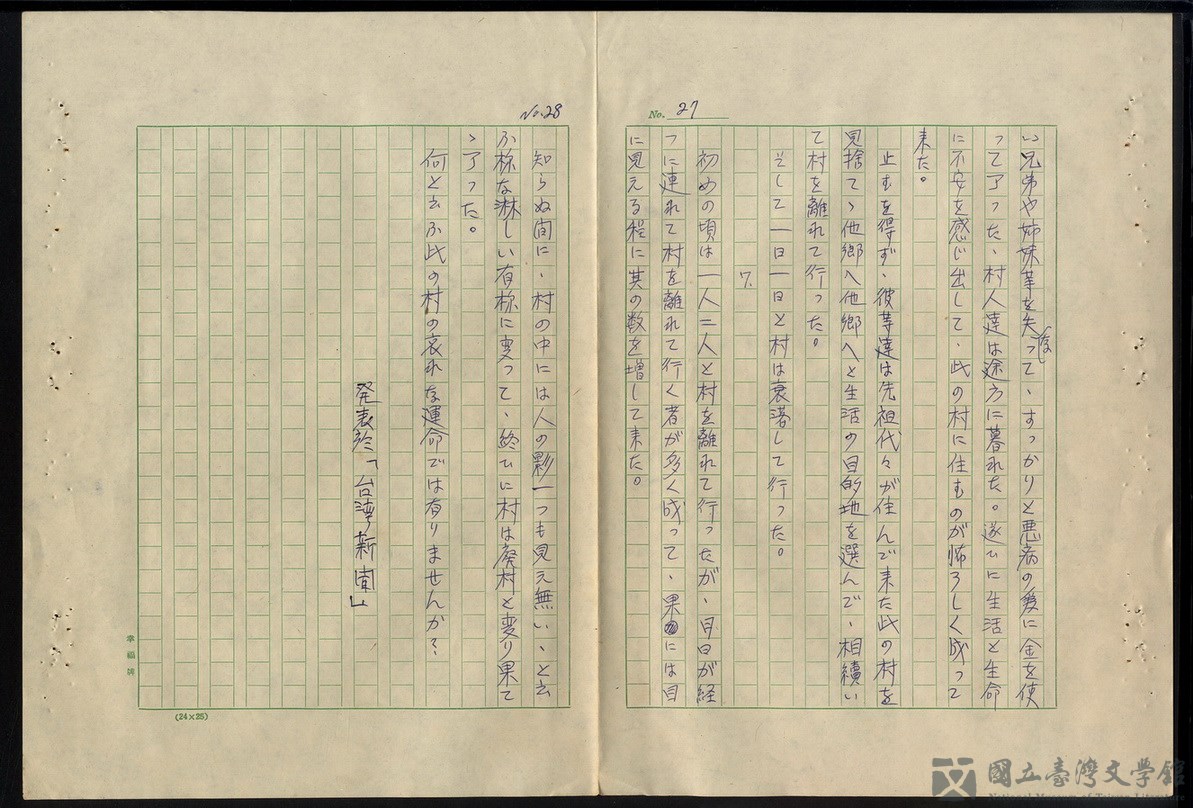 No. 27
い兄弟や姉妹等を失って、すっかりと悪病の爲に金を使
なし
って了った、村人達は途方に暮れた。遂ひに生活と生命
に不安を感じ出して、此の村に住むものが怖ろしく成って
来た。
止むを得ず、彼等達は先祖代々が住んで来た此の村を
見捨てゝ他郷へ他郷へと生活の目的地を選んで、相續い
て村を離れて行った。
そして一日一日と村は衰落して行った。
7.
初めの頃は一人二人と村を離れて行ったが、月日が経
つに連れて村を離れて行く者が多く成って、果には目
に見える程に其の数を増して来た。
No. 28
知らぬ間に、村の中には人の影一つも見え無い、と云
ふ様な淋しい有様に変って、終ひに村は廃村と変り果て
ゝ了った。
何と云ふ此の村の哀れな運命では有りませんか？
発表於「台湾新聞」
幸福牌
(24×25)
國立臺灣文學館
National Museum of Taiwan Literature